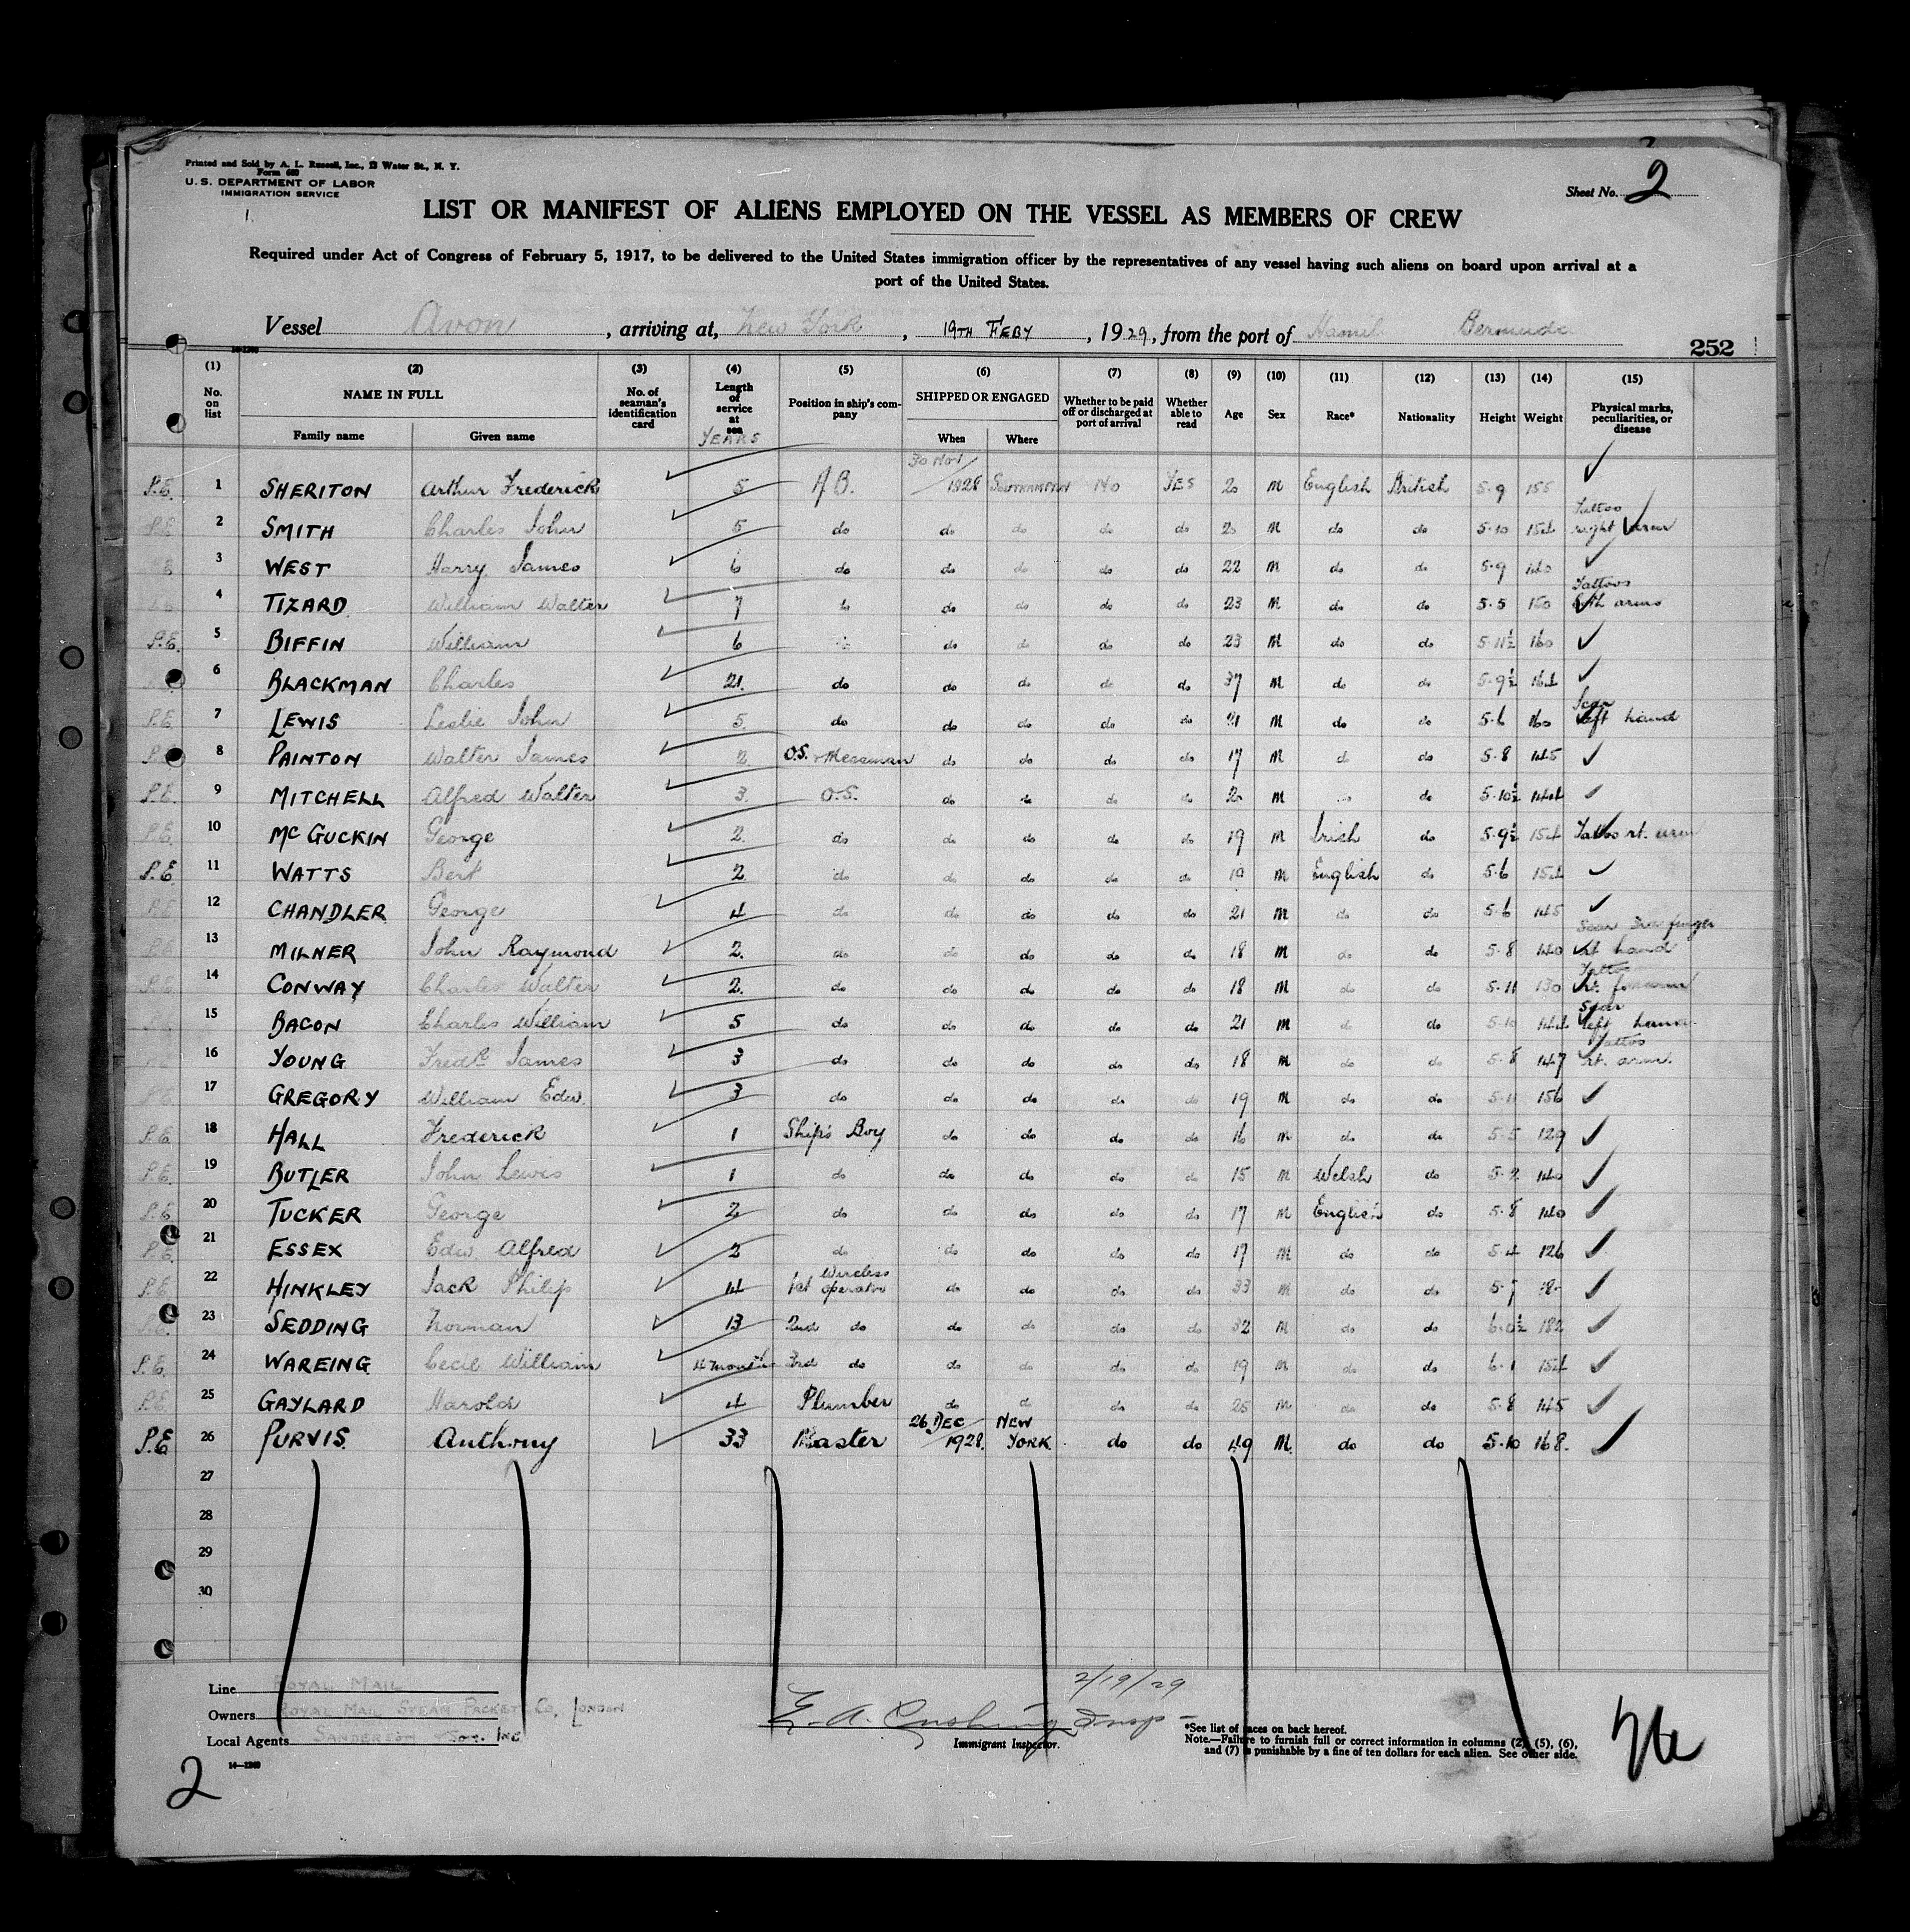 Printed and Sold by A. L. Russell, Inc., 13 Water St., N. Y.
Form 680
U. S. DEPARTMENT OF LABOR
IMMIGRATION SERVICE
Sheet No. 2
LIST OR MANIFEST OF ALIENS EMPLOYED ON THE VESSEL AS MEMBERS OF CREW
Required under Act of Congress of February 5, 1917, to be delivered to the United States immigration officer by the representatives of any vessel having such aliens on board upon arrival at a
port of the United States.
Vessel Avon, arriving at, New York, 19TH FEBY, 1929, from the port of Hamil Bermuda
252
(1) No. on list (2) NAME IN FULL Family name Given name (3) No. of seaman's identification card (4) Length of service at sea YEARS (5) Position in ship's company (6) SHIPPED OR ENGAGED When Where (7) Whether to be paid off or discharged at port of arrival (8) Whether able to read (9) Age (10) Sex (11) Race* (12) Nationality (13) Height (14) Weight (15) Physical marks, peculiarities, or disease
P.E. 1 SHERITON Arthur Frederick 5 A.B. 30 Nov/1928 SOUTHAMPTON NO YES 20 M English British 5-9 155
P.E. 2 SMITH Charles John 5 do do do do do 20 M do do 5-10 154 Tattoo right arm
3 WEST Harry James 6 do do do do do 22 M do do 5-9 140
4 TIZARD William Walter 7 do do do do 23 M do do 5-5 150 Tattoos both arms
P.E. 5 BIFFIN William 6 do do do do 23 M do do 5-11½ 160
6 BLACKMAN Charles 21 do do do do do 37 M do do 5-9½ 164
P.E. 7 LEWIS Leslie John 5 do do do do do 21 M do do 5-6 160 Scar left hand
P.E. 8 PAINTON Walter James 2 O.S. & Messman do do do do 17 M do do 5-8 145
P.E. 9 MITCHELL Alfred Walter 3 O.S. do do do do 20 M do 5-10½ 144
P.E. 10 McGUCKIN George 2 do do do do do 19 M Irish do 5-9½ 154 Tattoo rt. arm
P.E. 11 WATTS Bert 2 do do do do do 19 M English do 5-6 154
P.E. 12 CHANDLER George 4 do do do do do 21 M do do 5-6 145
P.E. 13 MILNER John Raymond 2 do do do do do 18 M do do 5-8 140 Scar finger rt hand
P.E. 14 CONWAY Charles Walter 2 do do do do do 18 M do do 5-11 130 Tattoo rt. forearm
15 BACON Charles William 5 do do do do do 21 M do do 5-10 144 Scar left hand
16 YOUNG Fredk James 3 do do do do do 18 M do do 5-8 147 Tattoo rt. arm.
P.E. 17 GREGORY William Edw. 3 do do do do do 19 M do do 5-11 156
P.E. 18 HALL Frederick 1 Ship's Boy do do do do 16 M do do 5-5 129
P.E. 19 BUTLER John Lewis 1 do do do do do 15 M Welsh do 5-2 140
P.E. 20 TUCKER George 2 do do do do do 17 M English do 5-8 140
P.E. 21 ESSEX Edw. Alfred 2 do do do do do 17 M do do 5-4 126
P.E. 22 HINKLEY Jack Philip 14 1st Wireless operator do do do do 33 M do do 5-7
P.E. 23 SEDDING Norman 13 2nd do do do do do 32 M do do 6-0½ 182
P.E. 24 WAREING Cecil William 4 months 3rd do do do do do 19 M do do 6-1 154
P.E. 25 GAYLARD Harold 4 Plumber do do do do 25 M do do 5-8 145
P.E. 26 PURVIS. Anthony 33 Master 26 DEC/1928. NEW YORK. do do 49 M. do do 5-10 168.
27
28
29
30
Line ROYAL MAIL
Owners ROYAL MAIL STEAM PACKET Co, LONDON
Local Agents SANDERSON & Son. INC
2/19/29
E. A. Cushing Insp-
Immigrant Inspector.
*See list of races on back hereof.
Note.—Failure to furnish full or correct information in columns (2), (5), (6),
and (7) is punishable by a fine of ten dollars for each alien. See other side.
14—1240
2
26